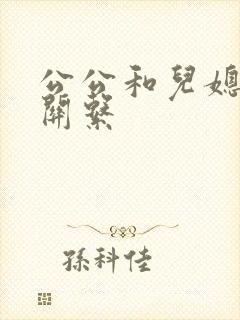 公公和兒媳
關繫
孫科佳